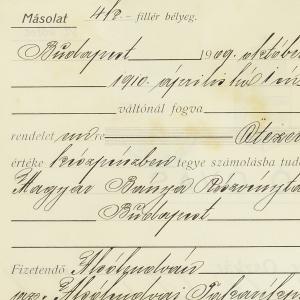 Másolat 4k.– fillér bélyeg.
Budapest 1909. október
1910. április hó 1 én
váltónál fogva
rendelet ünre Ötezer
értéke készpénzben tegye számolásba tud
Magyar Bánya Részvényt
Budapest
Fizetendő Alsólendván